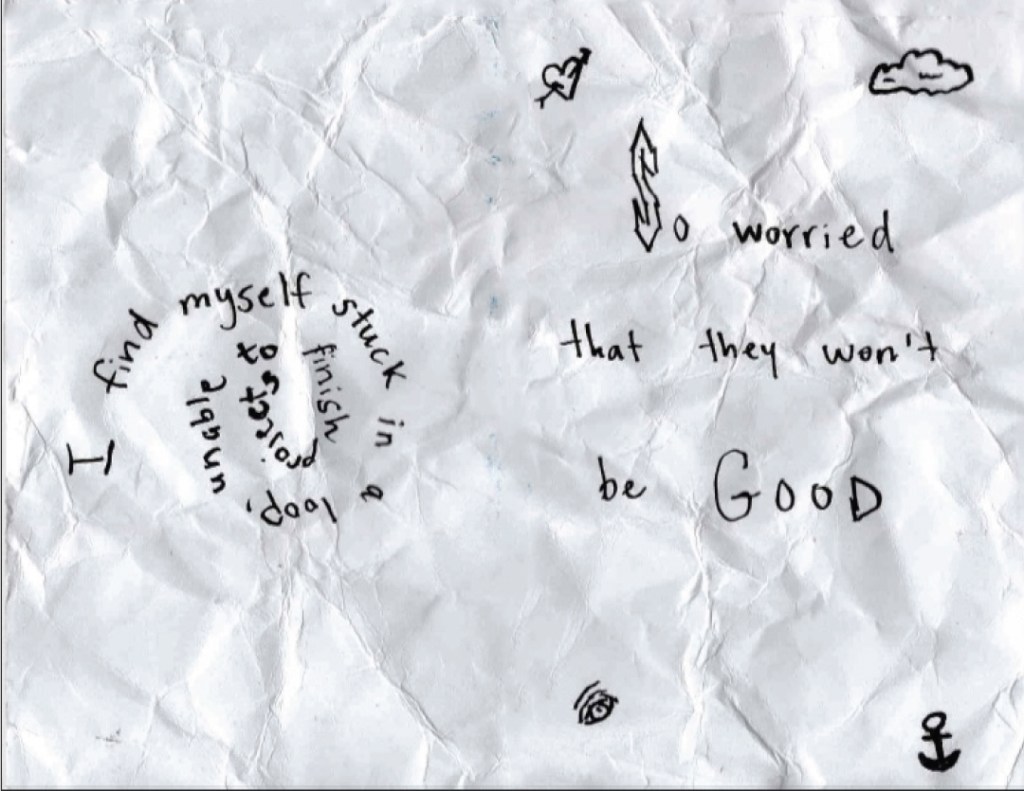 I find myself stuck in a loop, unable to finish projects
So worried
that they won't
be GOOD